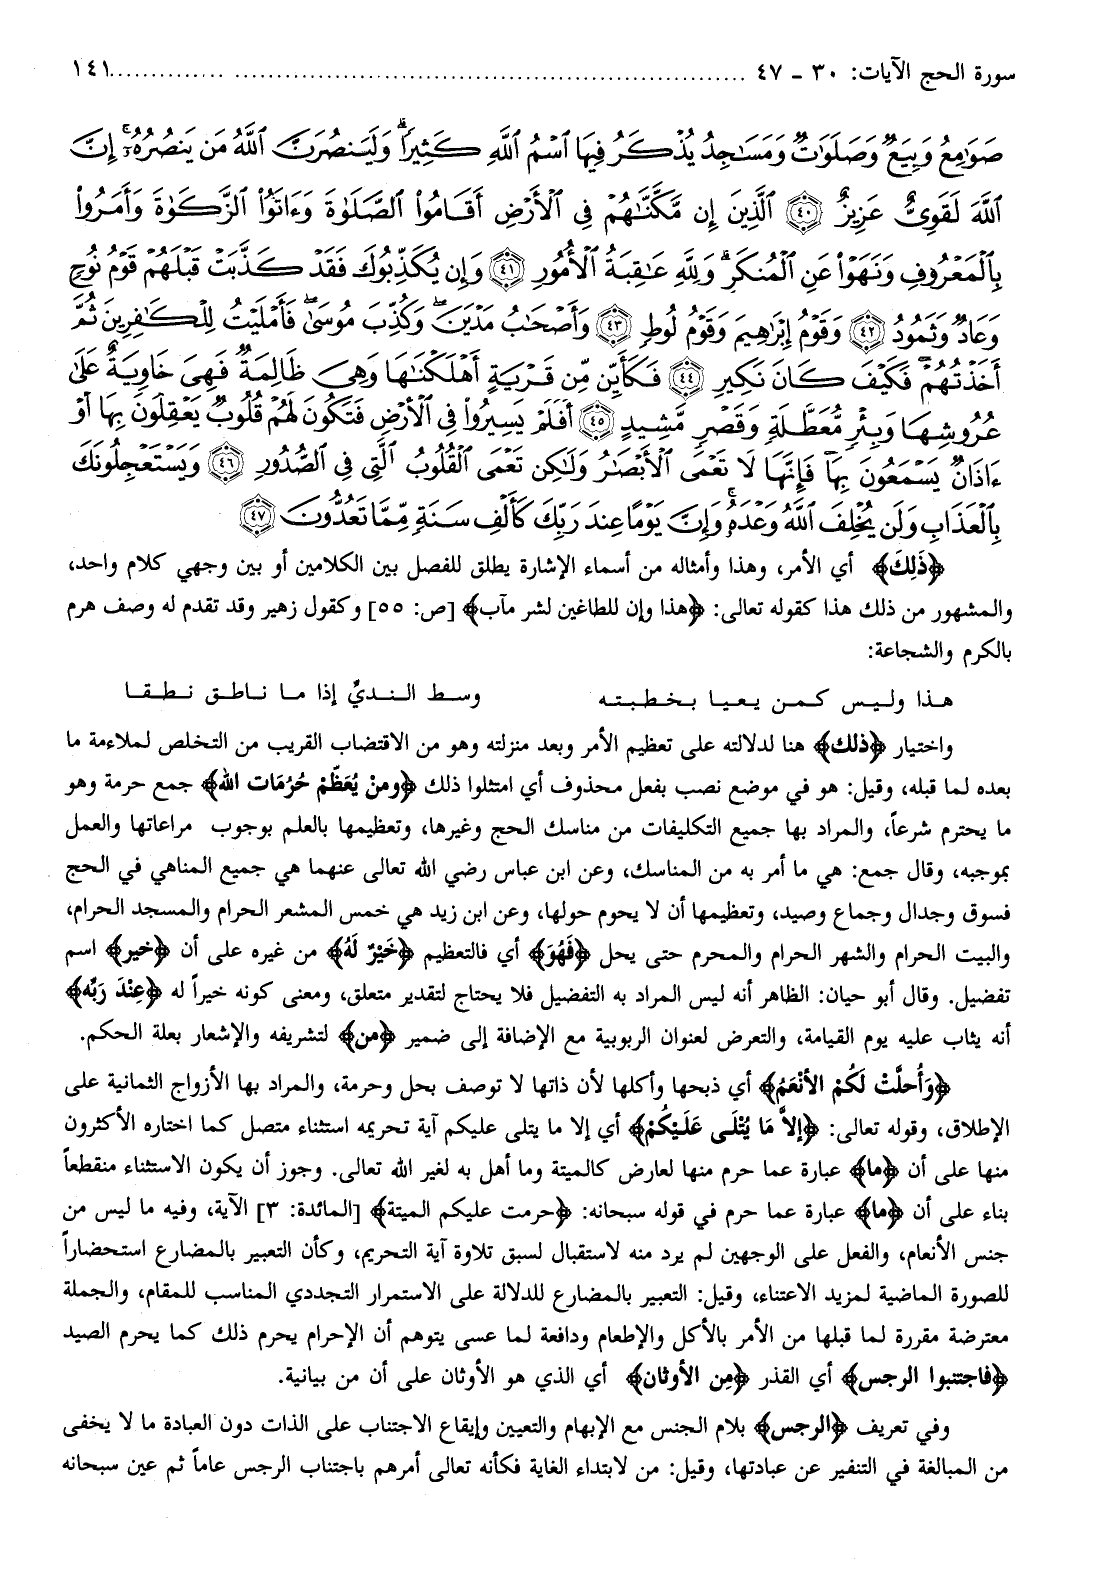 سورة الحج الآيات: ٣٠ - ٤٧ ........................................................................ ١٤١
صَوَامِعُ وَبِيَعٌ وَصَلَوَاتٌ وَمَسَاجِدُ يُذْكَرُ فِيهَا اسْمُ اللَّهِ كَثِيرًا وَلَيَنصُرَنَّ اللَّهُ مَن يَنصُرُهُ إِنَّ
اللَّهَ لَقَوِيٌّ عَزِيزٌ ﴿٤٠﴾ الَّذِينَ إِن مَّكَّنَّاهُمْ فِي الْأَرْضِ أَقَامُوا الصَّلَوٰةَ وَءَاتَوُا الزَّكَوٰةَ وَأَمَرُوا
بِالْمَعْرُوفِ وَنَهَوْا عَنِ الْمُنكَرِ وَلِلَّهِ عَاقِبَةُ الْأُمُورِ ﴿٤١﴾ وَإِن يُكَذِّبُوكَ فَقَدْ كَذَّبَتْ قَبْلَهُمْ قَوْمُ نُوحٍ
وَعَادٌ وَثَمُودُ ﴿٤٢﴾ وَقَوْمُ إِبْرَاهِيمَ وَقَوْمُ لُوطٍ ﴿٤٣﴾ وَأَصْحَابُ مَدْيَنَ وَكُذِّبَ مُوسَىٰ فَأَمْلَيْتُ لِلْكَافِرِينَ ثُمَّ
أَخَذْتُهُمْ فَكَيْفَ كَانَ نَكِيرِ ﴿٤٤﴾ فَكَأَيِّن مِّن قَرْيَةٍ أَهْلَكْنَاهَا وَهِيَ ظَالِمَةٌ فَهِيَ خَاوِيَةٌ عَلَىٰ
عُرُوشِهَا وَبِئْرٍ مُّعَطَّلَةٍ وَقَصْرٍ مَّشِيدٍ ﴿٤٥﴾ أَفَلَمْ يَسِيرُوا فِي الْأَرْضِ فَتَكُونَ لَهُمْ قُلُوبٌ يَعْقِلُونَ بِهَا أَوْ
ءَاذَانٌ يَسْمَعُونَ بِهَا فَإِنَّهَا لَا تَعْمَى الْأَبْصَارُ وَلَٰكِن تَعْمَى الْقُلُوبُ الَّتِي فِي الصُّدُورِ ﴿٤٦﴾ وَيَسْتَعْجِلُونَكَ
بِالْعَذَابِ وَلَن يُخْلِفَ اللَّهُ وَعْدَهُ وَإِنَّ يَوْمًا عِندَ رَبِّكَ كَأَلْفِ سَنَةٍ مِّمَّا تَعُدُّونَ ﴿٤٧﴾
﴿ذَلِكَ﴾ أي الأمر، وهذا وأمثاله من أسماء الإشارة يطلق للفصل بين الكلامين أو بين وجهي كلام واحد،
والمشهور من ذلك هذا كقوله تعالى: ﴿هذا وإن للطاغين لشر مآب﴾ [ص: ٥٥] وكقول زهير وقد تقدم له وصف هرم
بالكرم والشجاعة:
هذا وليس كمن يعيا بخطبته وسط النديِّ إذا ما ناطق نطقا
واختيار ﴿ذلك﴾ هنا لدلالته على تعظيم الأمر وبعد منزلته وهو من الاقتضاب القريب من التخلص لملاءمة ما
بعده لما قبله، وقيل: هو في موضع نصب بفعل محذوف أي امتثلوا ذلك ﴿ومنْ يُعَظّمْ حُرُمَات الله﴾ جمع حرمة وهو
ما يحترم شرعاً، والمراد بها جميع التكليفات من مناسك الحج وغيرها، وتعظيمها بالعلم بوجوب مراعاتها والعمل
بموجبه، وقال جمع: هي ما أمر به من المناسك، وعن ابن عباس رضي الله تعالى عنهما هي جميع المناهي في الحج
فسوق وجدال وجماع وصيد، وتعظيمها أن لا يحوم حولها، وعن ابن زيد هي خمس المشعر الحرام والمسجد الحرام،
والبيت الحرام والشهر الحرام والمحرم حتى يحل ﴿فَهُوَ﴾ أي فالتعظيم ﴿خَيْرٌ لَهُ﴾ من غيره على أن ﴿خير﴾ اسم
تفضيل. وقال أبو حيان: الظاهر أنه ليس المراد به التفضيل فلا يحتاج لتقدير متعلق، ومعنى كونه خيراً له ﴿عِنْدَ رَبِّه﴾
أنه يثاب عليه يوم القيامة، والتعرض لعنوان الربوبية مع الإضافة إلى ضمير ﴿من﴾ لتشريفه والإشعار بعلة الحكم.
﴿وَأُحلَّتْ لَكُمْ الأنْعَمُ﴾ أي ذبحها وأكلها لأن ذاتها لا توصف بحل وحرمة، والمراد بها الأزواج الثمانية على
الإطلاق، وقوله تعالى: ﴿إلاَّ مَا يُتْلَى عَلَيكُمْ﴾ أي إلا ما يتلى عليكم آية تحريمه استثناء متصل كما اختاره الأكثرون
منها على أن ﴿ما﴾ عبارة عما حرم منها لعارض كالميتة وما أهل به لغير الله تعالى. وجوز أن يكون الاستثناء منقطعاً
بناء على أن ﴿ما﴾ عبارة عما حرم في قوله سبحانه: ﴿حرمت عليكم الميتة﴾ [المائدة: ٣] الآية، وفيه ما ليس من
جنس الأنعام، والفعل على الوجهين لم يرد منه لاستقبال لسبق تلاوة آية التحريم، وكأن التعبير بالمضارع استحضاراً
للصورة الماضية لمزيد الاعتناء، وقيل: التعبير بالمضارع للدلالة على الاستمرار التجددي المناسب للمقام، والجملة
معترضة مقررة لما قبلها من الأمر بالأكل والإطعام ودافعة لما عسى يتوهم أن الإحرام يحرم ذلك كما يحرم الصيد
﴿فاجتنبوا الرجس﴾ أي القذر ﴿مِن الأوثان﴾ أي الذي هو الأوثان على أن من بيانية.
وفي تعريف ﴿الرجس﴾ بلام الجنس مع الإبهام والتعيين وإيقاع الاجتناب على الذات دون العبادة ما لا يخفى
من المبالغة في التنفير عن عبادتها، وقيل: من لابتداء الغاية فكأنه تعالى أمرهم باجتناب الرجس عاماً ثم عين سبحانه